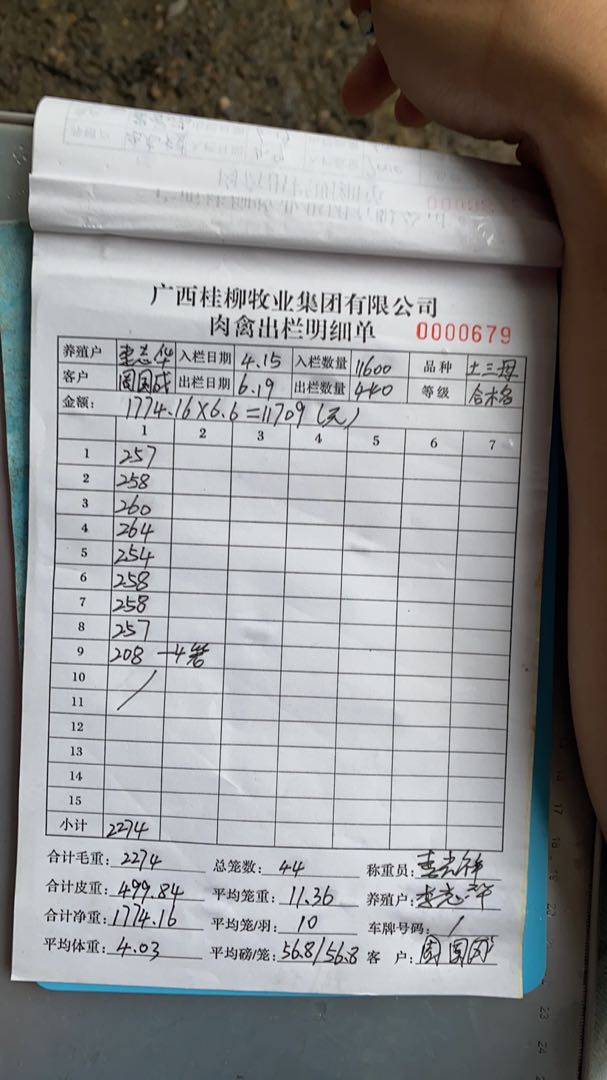 广西桂柳牧业集团有限公司
肉禽出栏明细单 0000679
养殖户 李志 入栏日期 4.15 入栏数量 11600 品种 土三母
客户 周国成 出栏日期 6.19 出栏数量 440 等级 合格
金额: 1774.16×6.6=11709(元)
1 2 3 4 5 6 7
1 257
2 258
3 260
4 264
5 254
6 258
7 258
8 257
9 208 4笼
10
11
12
13
14
15
小计 2274
合计毛重: 2274 总笼数: 44 称重员:
合计皮重: 499.84 平均笼重: 11.36 养殖户: 李志
合计净重: 1774.16 平均笼/羽: 10 车牌号码: /
平均体重: 4.03 平均磅/笼: 56.8/56.8 客户: 周国
17
18
19
20
22
23
24